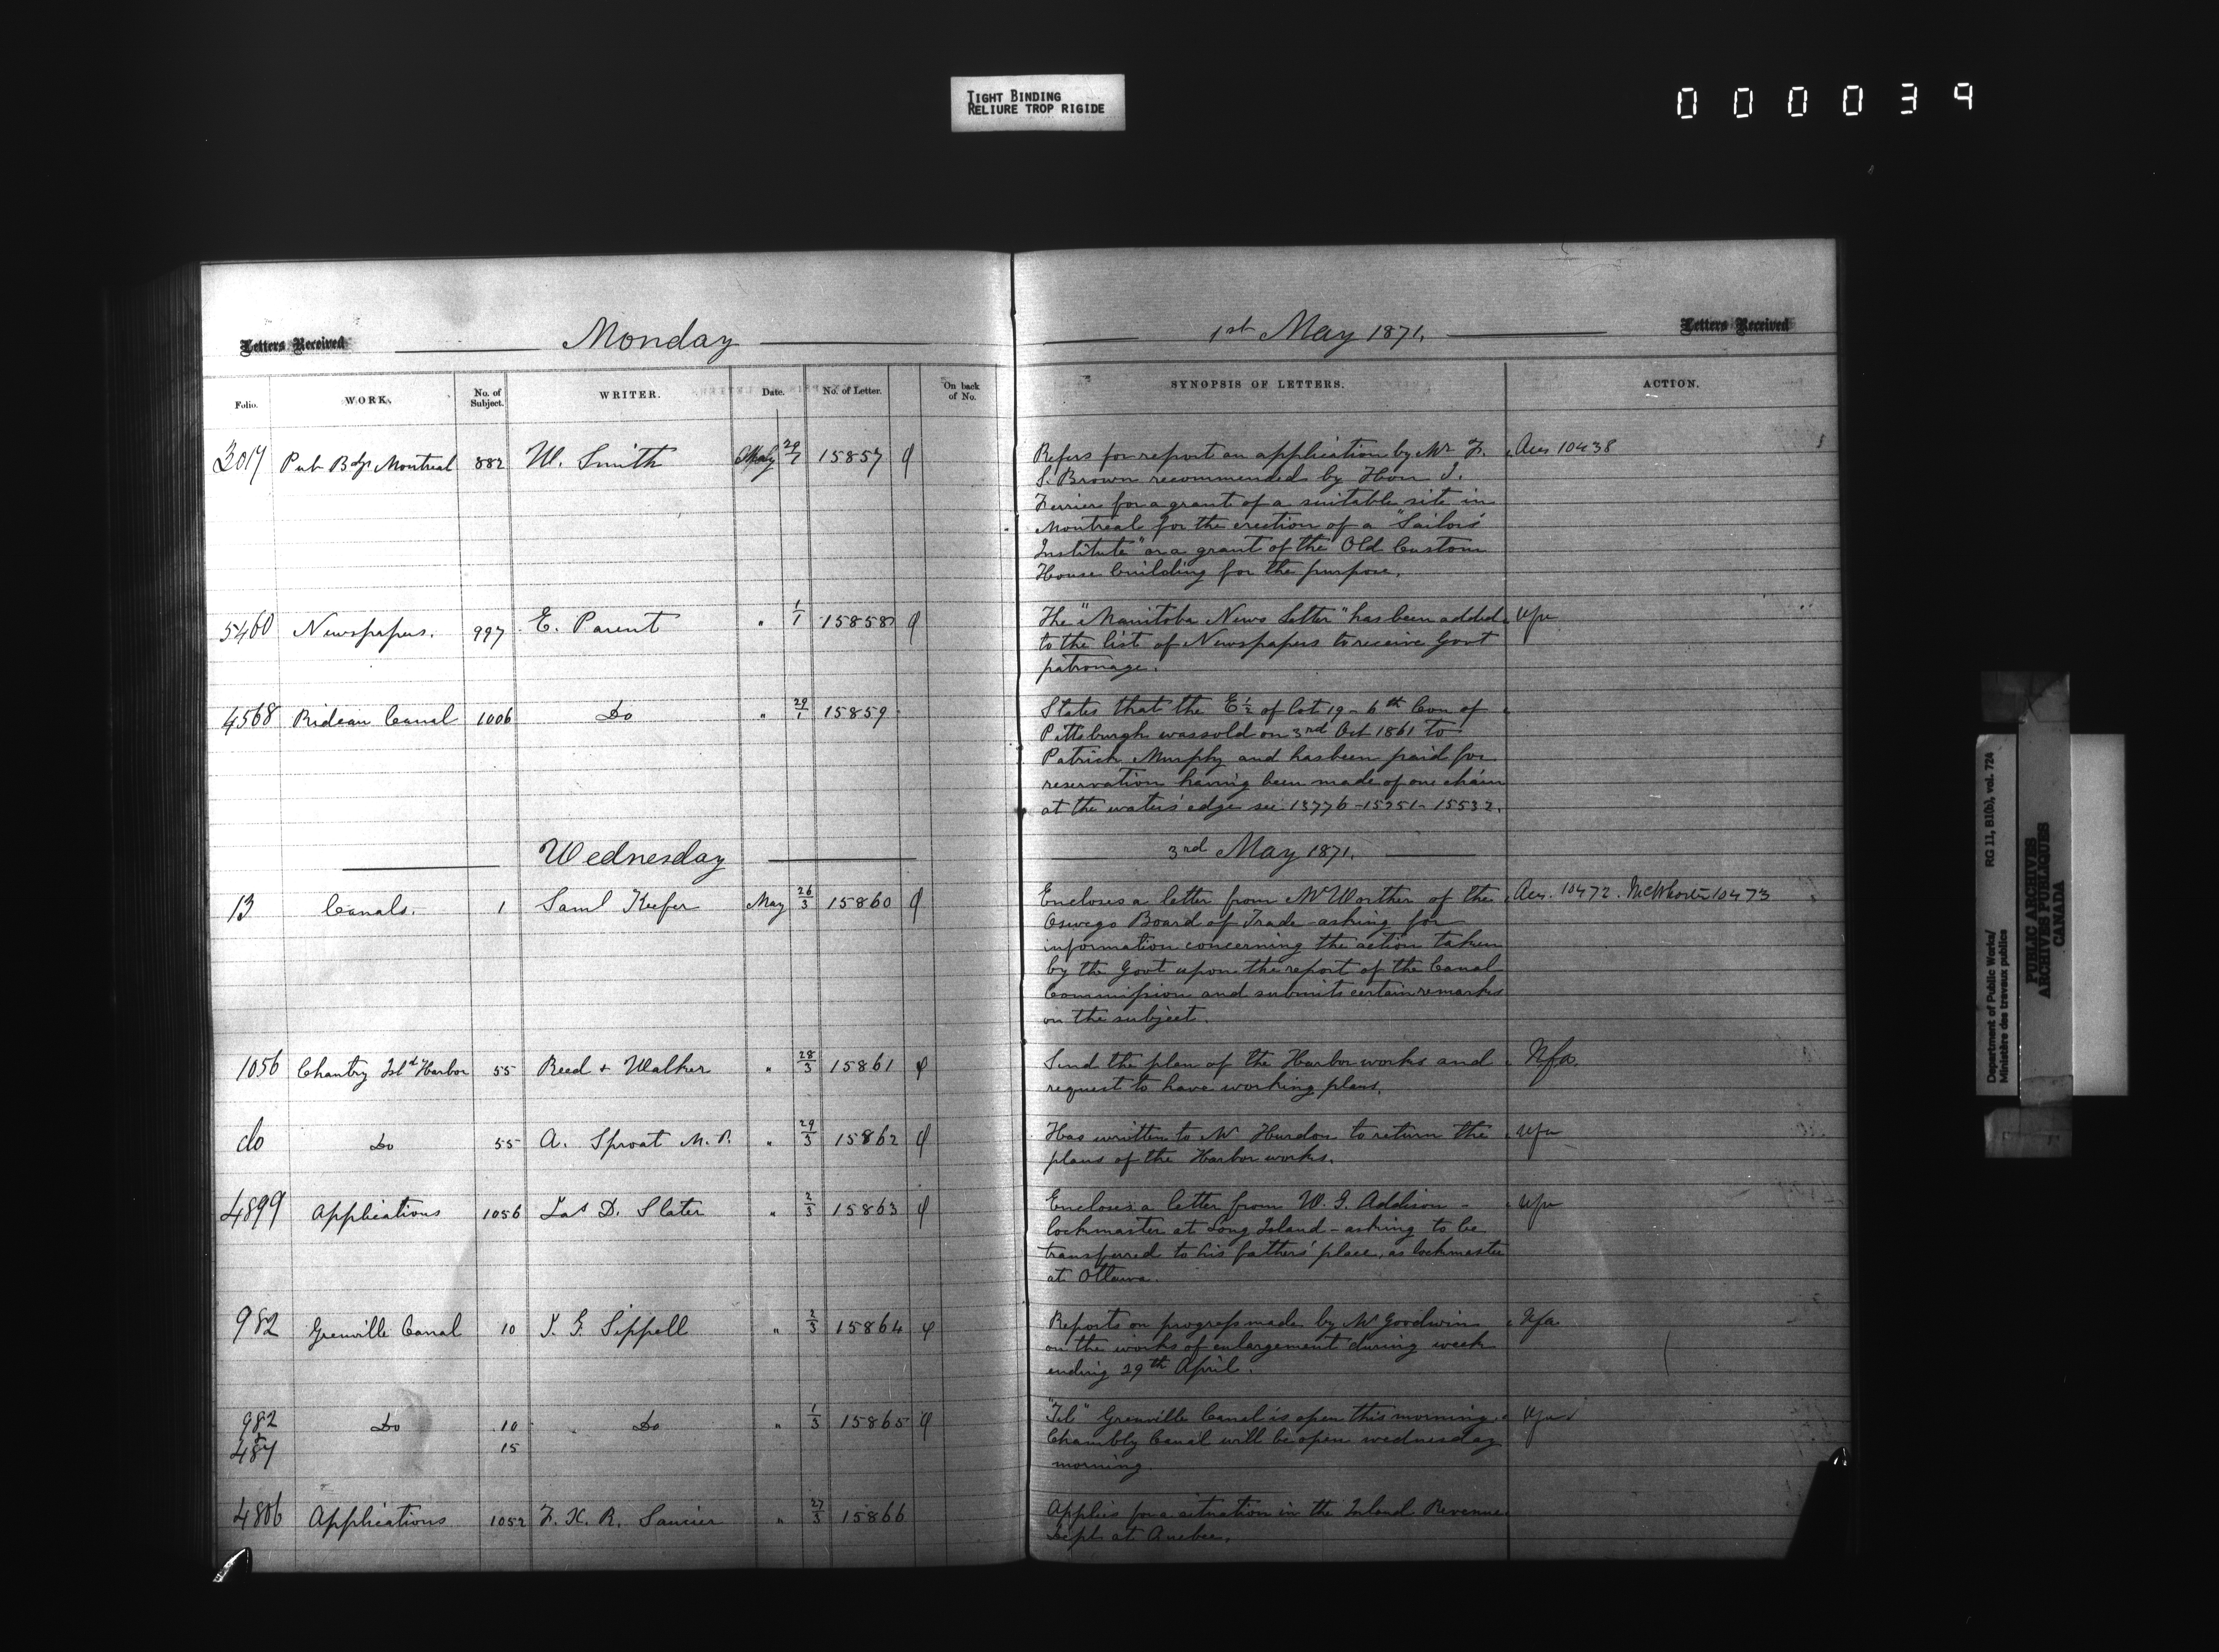 TIGHT BINDING
RELIURE TROP RIGIDE
000039
Letters Received
Monday
1st May 1871.
Letters Received
Folio. WORK. No. of Subject. WRITER. Date. No. of Letter. On back of No. SYNOPSIS OF LETTERS. ACTION.
3017 Pub Bdgs Montreal 882 W. Smith May 29/1 15857
Refers for report an application by Mr F. Ans 10438
S. Brown recommended by Hon J.
Ferrier for a grant of a suitable site in
Montreal for the erection of a "Sailors'
Institute" or a grant of the Old Custom
House building for the purpose.
5460 Newspapers. 997 E. Parent " 1/1 15858
The "Manitoba News Letter" has been added Nfa
to the list of Newspapers to receive Govt
patronage.
4568 Rideau Canal 1006 Do " 29/1 15859
States that the E ½ of Lot 19 - 6th Con of
Pittsburgh was sold on 3rd Oct 1861 to
Patrick Murphy and has been paid for
reservation having been made of one chain
at the waters' edge see 13776-15251-15532.
Wednesday
3rd May 1871.
13 Canals. 1 Saml Keefer May 26/3 15860
Encloses a letter from McWorther of the Ans. 10472. McWhorter 10473
Oswego Board of Trade asking for
information concerning the action taken
by the Govt upon the report of the Canal
Commission and submits certain remarks
on the subject.
1056 Chantry Isld Harbor 55 Reed + Walker " 28/3 15861
Send the plan of the Harbor works and Nfa.
request to have working plans.
do Do 55 A. Sproat M.P. " 29/3 15862
Has written to Mr Hurdon to return the Nfa
plans of the Harbor works.
4899 Applications 1056 Jas D. Slater " 2/3 15863
Encloses a letter from W. G. Addison - Nfa
lockmaster at Long Island - asking to be
transferred to his fathers' place, as lockmaster
at Ottawa.
982 Grenville Canal 10 J. G. Sippell " 2/3 15864
Reports on progress made by Mr Goodwin Nfa
on the works of enlargement during week
ending 29th April.
982 Do 10 Do " 1/3 15865
487 15
"Tel" Grenville Canal is open this morning. Nfa
Chambly Canal will be open wednesday
morning.
4806 Applications 1052 F. X. R. Saucier " 27/3 15866
Applies for a situation in the Inland Revenue
Dept at Quebec.
Department of Public Works/ RG 11, B1(b), vol. 724
Ministère des travaux publics
PUBLIC ARCHIVES
ARCHIVES PUBLIQUES
CANADA